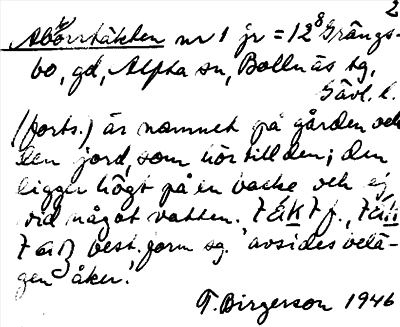 2
Aborrtäkten nr 1 jr = 12⁸ Grängs-
bo, gd, Alpha sn, Bollnäs tg,
Gävl. l.
(forts.) är namnet på gården och
den jord, som hör till den; den
ligger högt på en backe och ej
vid något vatten.
best. form sg. 'avsides belä-
gen åker.'
T. Birgerson 1946